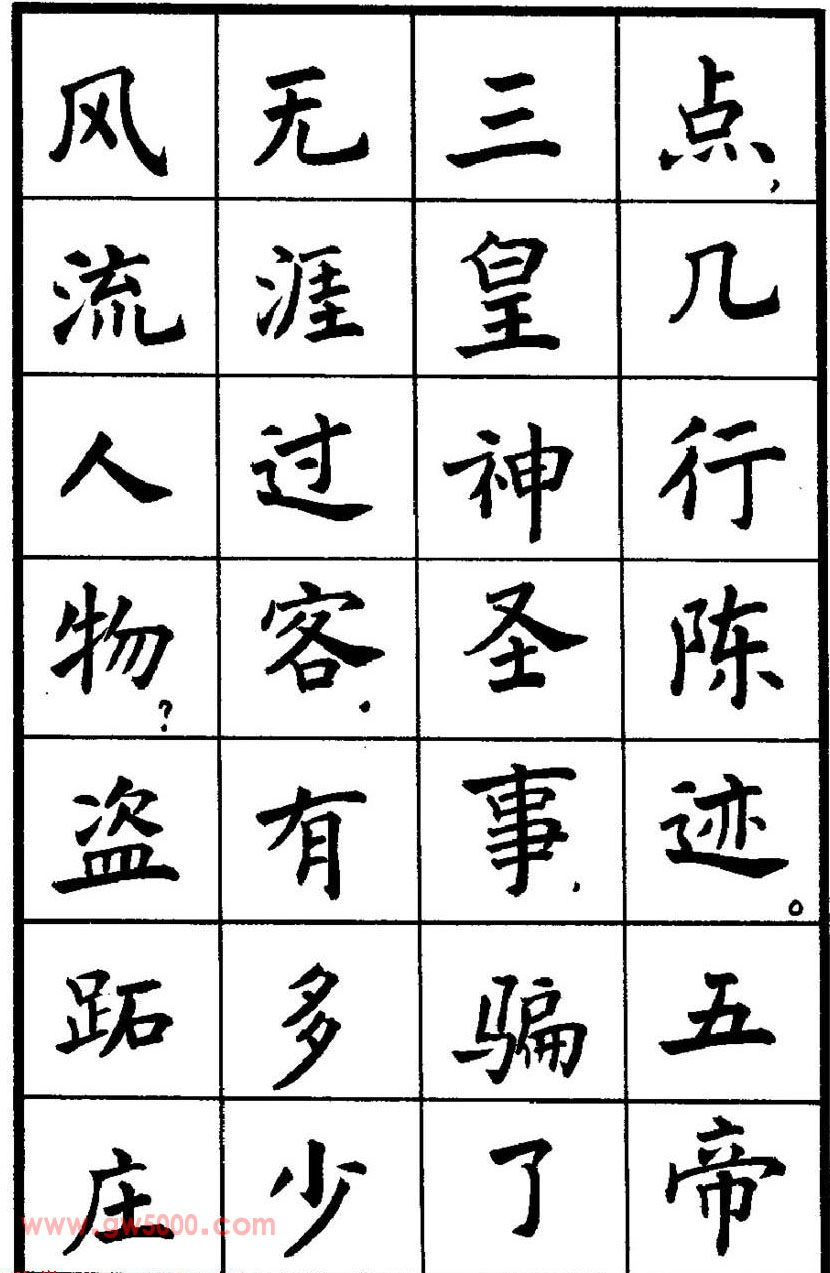 点，几行陈迹。五帝
三皇神圣事，骗了
无涯过客．有多少
风流人物？盗跖庄
www.gw5000.com